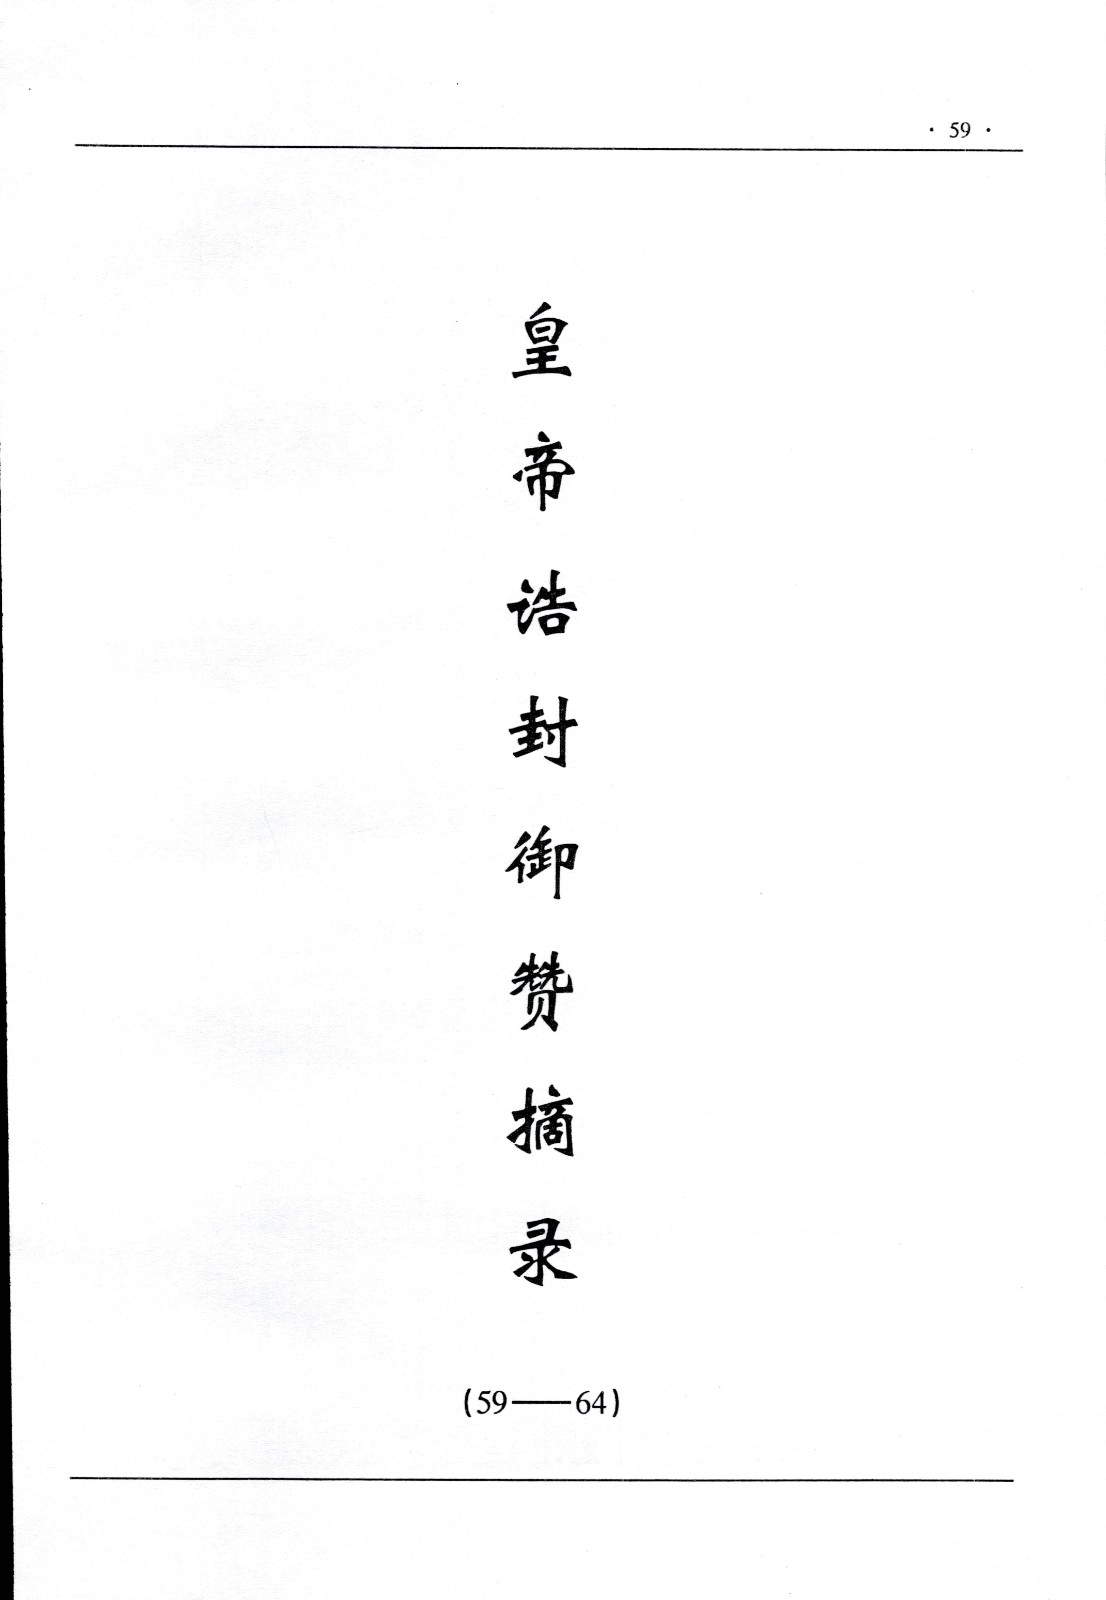 · 59 ·
皇帝诰封御赞摘录
(59——64)